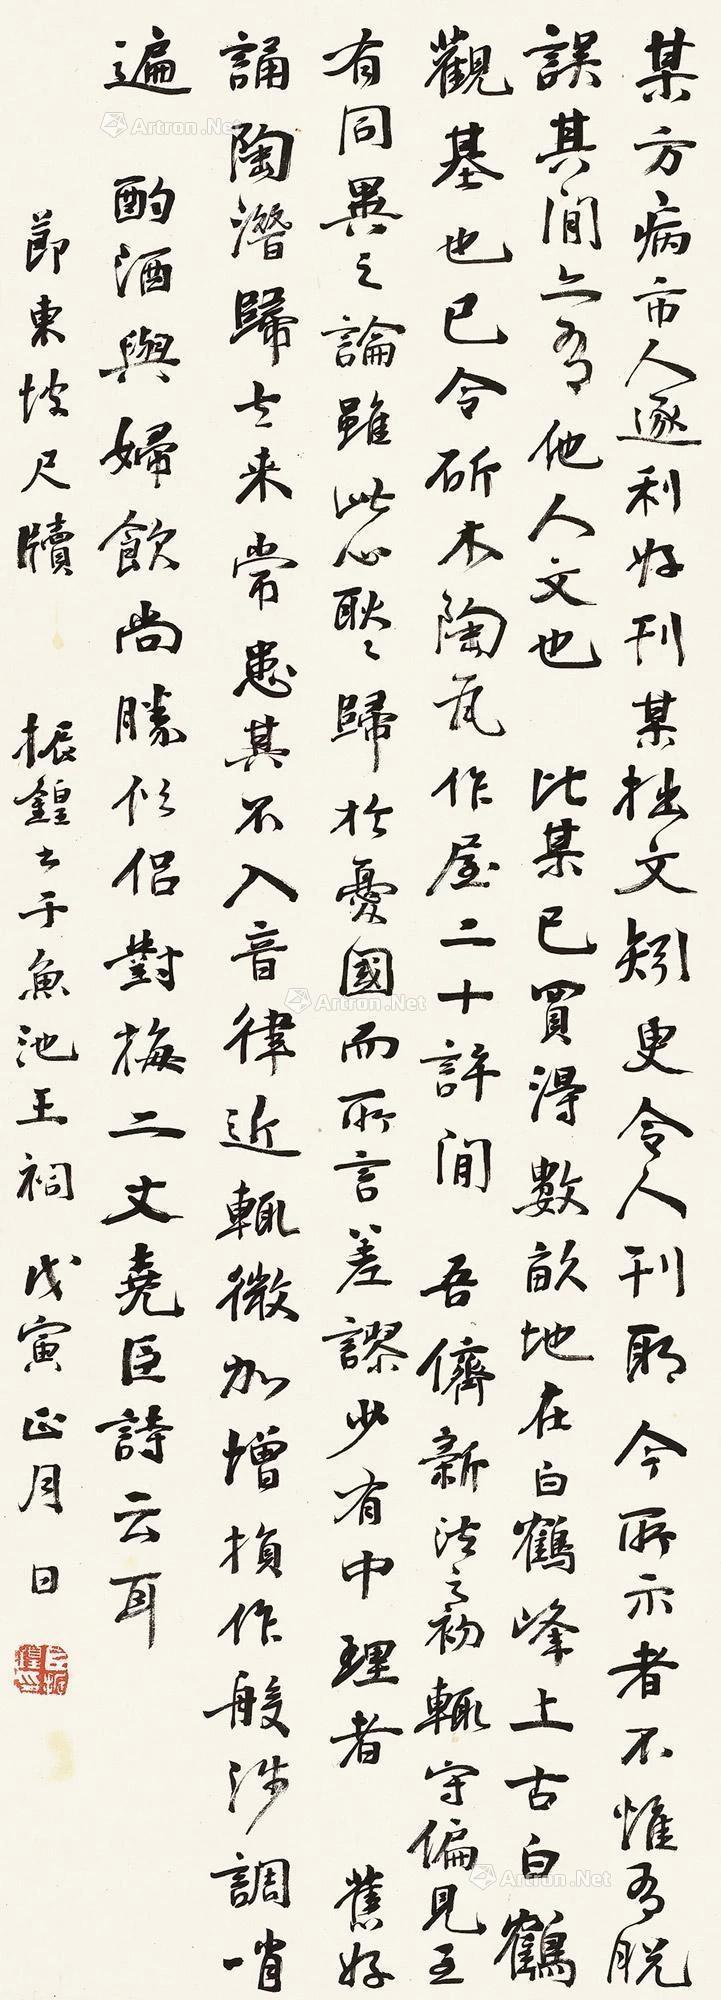 某方病市人逐利好刊某拙文矧更令人刊耶今所示者不惟有脱
誤其間亦有他人文也 比某已買得數畝地在白鶴峰上古白鶴
觀基也已令斫木陶瓦作屋二十許間 吾儕新法之初輒守偏見至
有同異之論雖此心耿々歸於憂國而所言差謬少有中理者 舊好
誦陶潛歸去来常患其不入音律近輒微加增損作般涉調哨
遍 酌酒與婦飲尚勝俗侶對梅二丈堯臣詩云耳
節東坡尺牘 振鍠書于魚池王祠 戊寅正月 日
Artron.Net
Artron.Net
Artron.Net